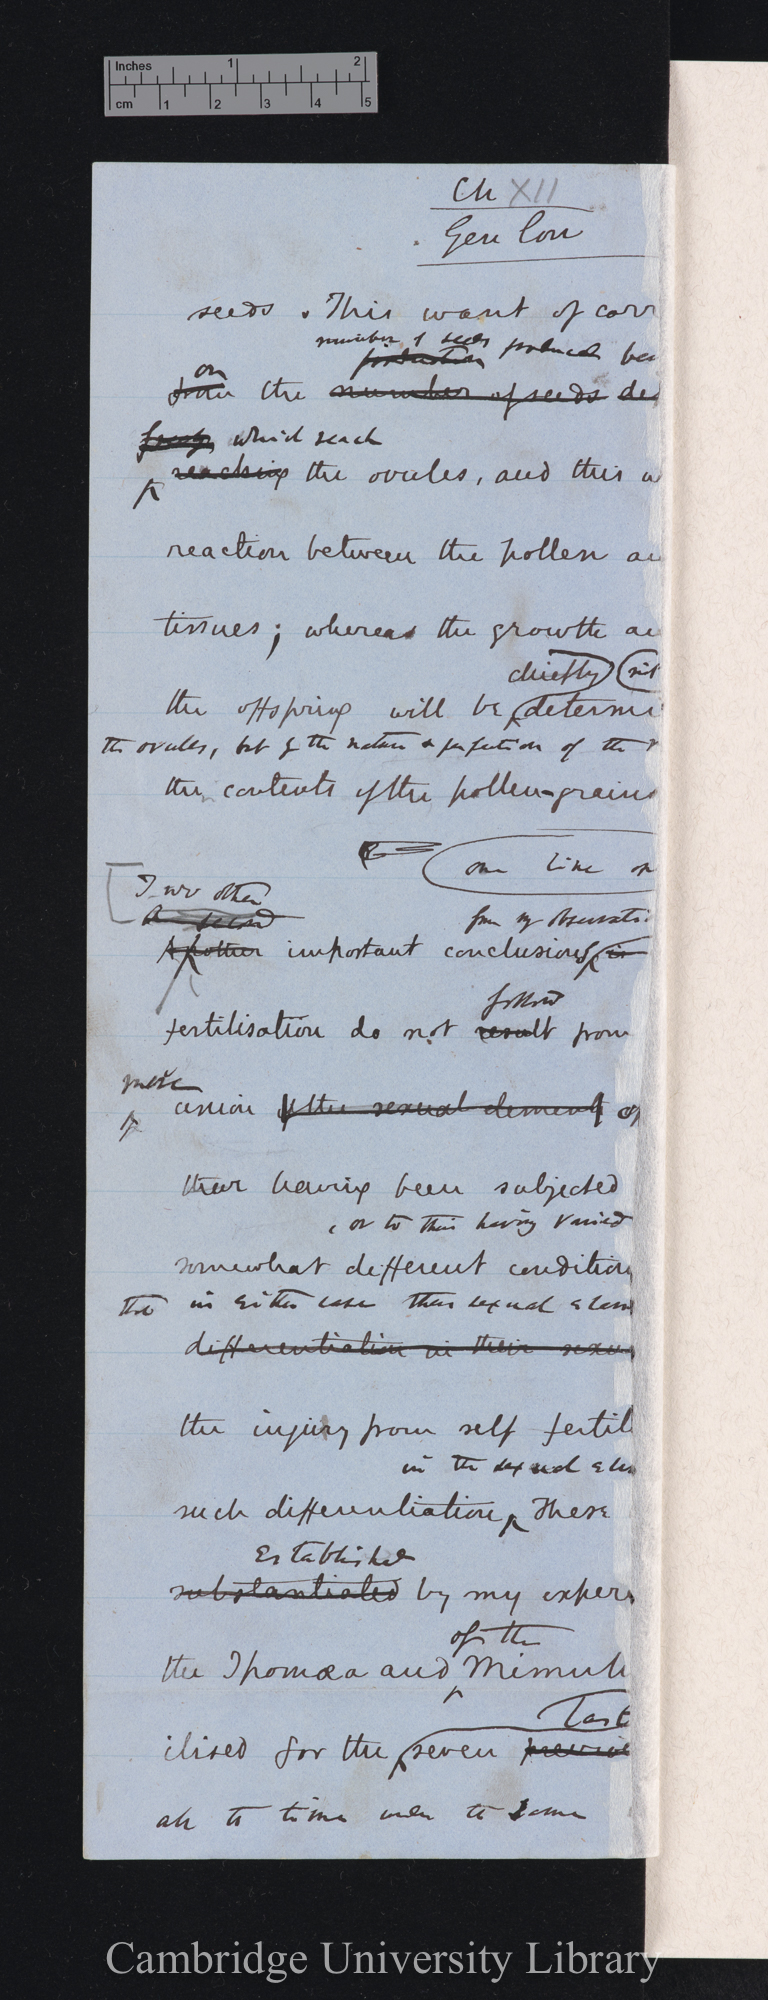 Inches 1 2
cm 1 2 3 4 5
Ch XII
Gen Con
seeds. This want of corr
number of seeds produced
production
on
from the number of seeds de
which reach
reaching the ovules, and this w
reaction between the pollen an
tissues; whereas the growth an
chiefly not
the offspring will be determi
the ovules, but by the nature & perfection of the
the contents of the pollen-grains
one line
Two other
A second from my observati
Another important conclusions is
follow
fertilisation do not result from
mere
union of the sexual elements of
their having been subjected
, or to their having varied
somewhat different condition
that in either case their sexual elem
differentiation in their sexu
the injury from self fertil
in the sexual ele
such differentiation. These
Established
substantiated by my exper
of the
the Ipomœa and Mimul
Last
ilised for the seven previou
to time were to some
Cambridge University Library